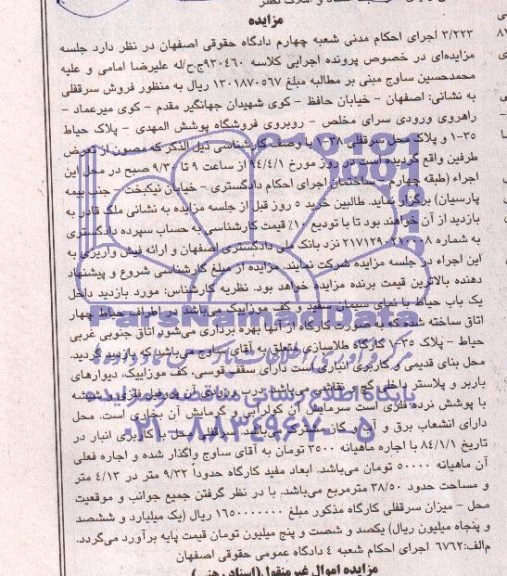 مزایده
۳/۲۲۳ اجرای احکام مدنی شعبه چهارم دادگاه حقوقی اصفهان در نظر دارد جلسه
مزایده‌ای در خصوص پرونده اجرایی کلاسه ۹۳۰۴۶۰ج‌ح/له علیرضا امامی و علیه
محمدحسین ساوج مبنی بر مطالبه مبلغ ۱۳۰۱۸۷۰۵۶۷ ریال به منظور فروش سرقفلی
به نشانی: اصفهان - خیابان حافظ - کوی شهیدان جهانگیر مقدم - کوی میرعماد -
راهروی ورودی سرای مخلص - روبروی فروشگاه پوشش المهدی - پلاک حیاط
۳۵-۱ و پلاک محل سرقفلی ۳۸-۱ با وصف کارشناسی ذیل الذکر که مصون از تعرض
طرفین واقع گردیده است در روز مورخ ۹۴/۴/۱ از ساعت ۹ تا ۹/۳۰ صبح در محل این
اجراء (طبقه چهارم - ساختمان اجرای احکام دادگستری - خیابان نیکبخت - جنب بیمه
پارسیان) برگزار نماید. طالبین خرید ۵ روز قبل از جلسه مزایده به نشانی ملک قادر به
بازدید از آن خواهند بود تا با تودیع ۱۰٪ قیمت کارشناسی به حساب سپرده دادگستری
به شماره نزد بانک ملی دادگستری اصفهان و ارائه فیش واریزی به
این اجراء در جلسه مزایده شرکت نمایند. مزایده از مبلغ کارشناسی شروع و پیشنهاد
دهنده بالاترین قیمت برنده مزایده خواهد بود. نظریه کارشناس: مورد بازدید داخل
یک باب حیاط با نمای سیمان سفید و کف موزاییک می‌باشد در اطراف حیاط چهار
اتاق ساخته شده که به صورت کارگاه از آنها بهره برداری می‌شود اتاق جنوبی غربی
حیاط - پلاک ۳۵-۱ کارگاه طلاسازی متعلق به آقای ساوج می‌باشد که بازدید گردید.
محل بنای قدیمی و کاربری انباری است دارای سقف قوسی، کف موزاییک، دیوارهای
باربر و پلاستر داخلی گچ و نقاشی می‌باشد. درب ورودی آن پروفیل فلزی و شیشه
با پوشش نرده فلزی است سرمایش آن کولرآبی و گرمایش آن بخاری است. محل
دارای انشعاب برق و آب و گاز مشترک می‌باشد. سرقفلی محل با کاربری انبار در
تاریخ ۸۴/۱/۱ با اجاره ماهیانه ۳۵۰۰ تومان به آقای ساوج واگذار شده و اجاره فعلی
آن ماهیانه ۵۰۰۰۰ تومان می‌باشد. ابعاد مفید کارگاه حدوداً ۹/۳۲ متر در ۴/۱۳ متر
و مساحت حدود ۳۸/۵۰ مترمربع می‌باشد. با در نظر گرفتن جمیع جوانب و موقعیت
محل - میزان سرقفلی کارگاه مذکور مبلغ ۱۶۵۰۰۰۰۰۰۰ ریال (یک میلیارد و ششصد
و پنجاه میلیون ریال) یکصد و شصت و پنج میلیون تومان قیمت پایه برآورد می‌گردد.
م‌الف: ۶۷۶۲ اجرای احکام شعبه ۴ دادگاه عمومی حقوقی اصفهان
مزایده اموال غیرمنقول (اسناد رهنی)
ParsNamadData
پایگاه اطلاع رسانی مناقصه و مزایده
۰۲۱-۸۸۳۴۹۶۷۰-۵